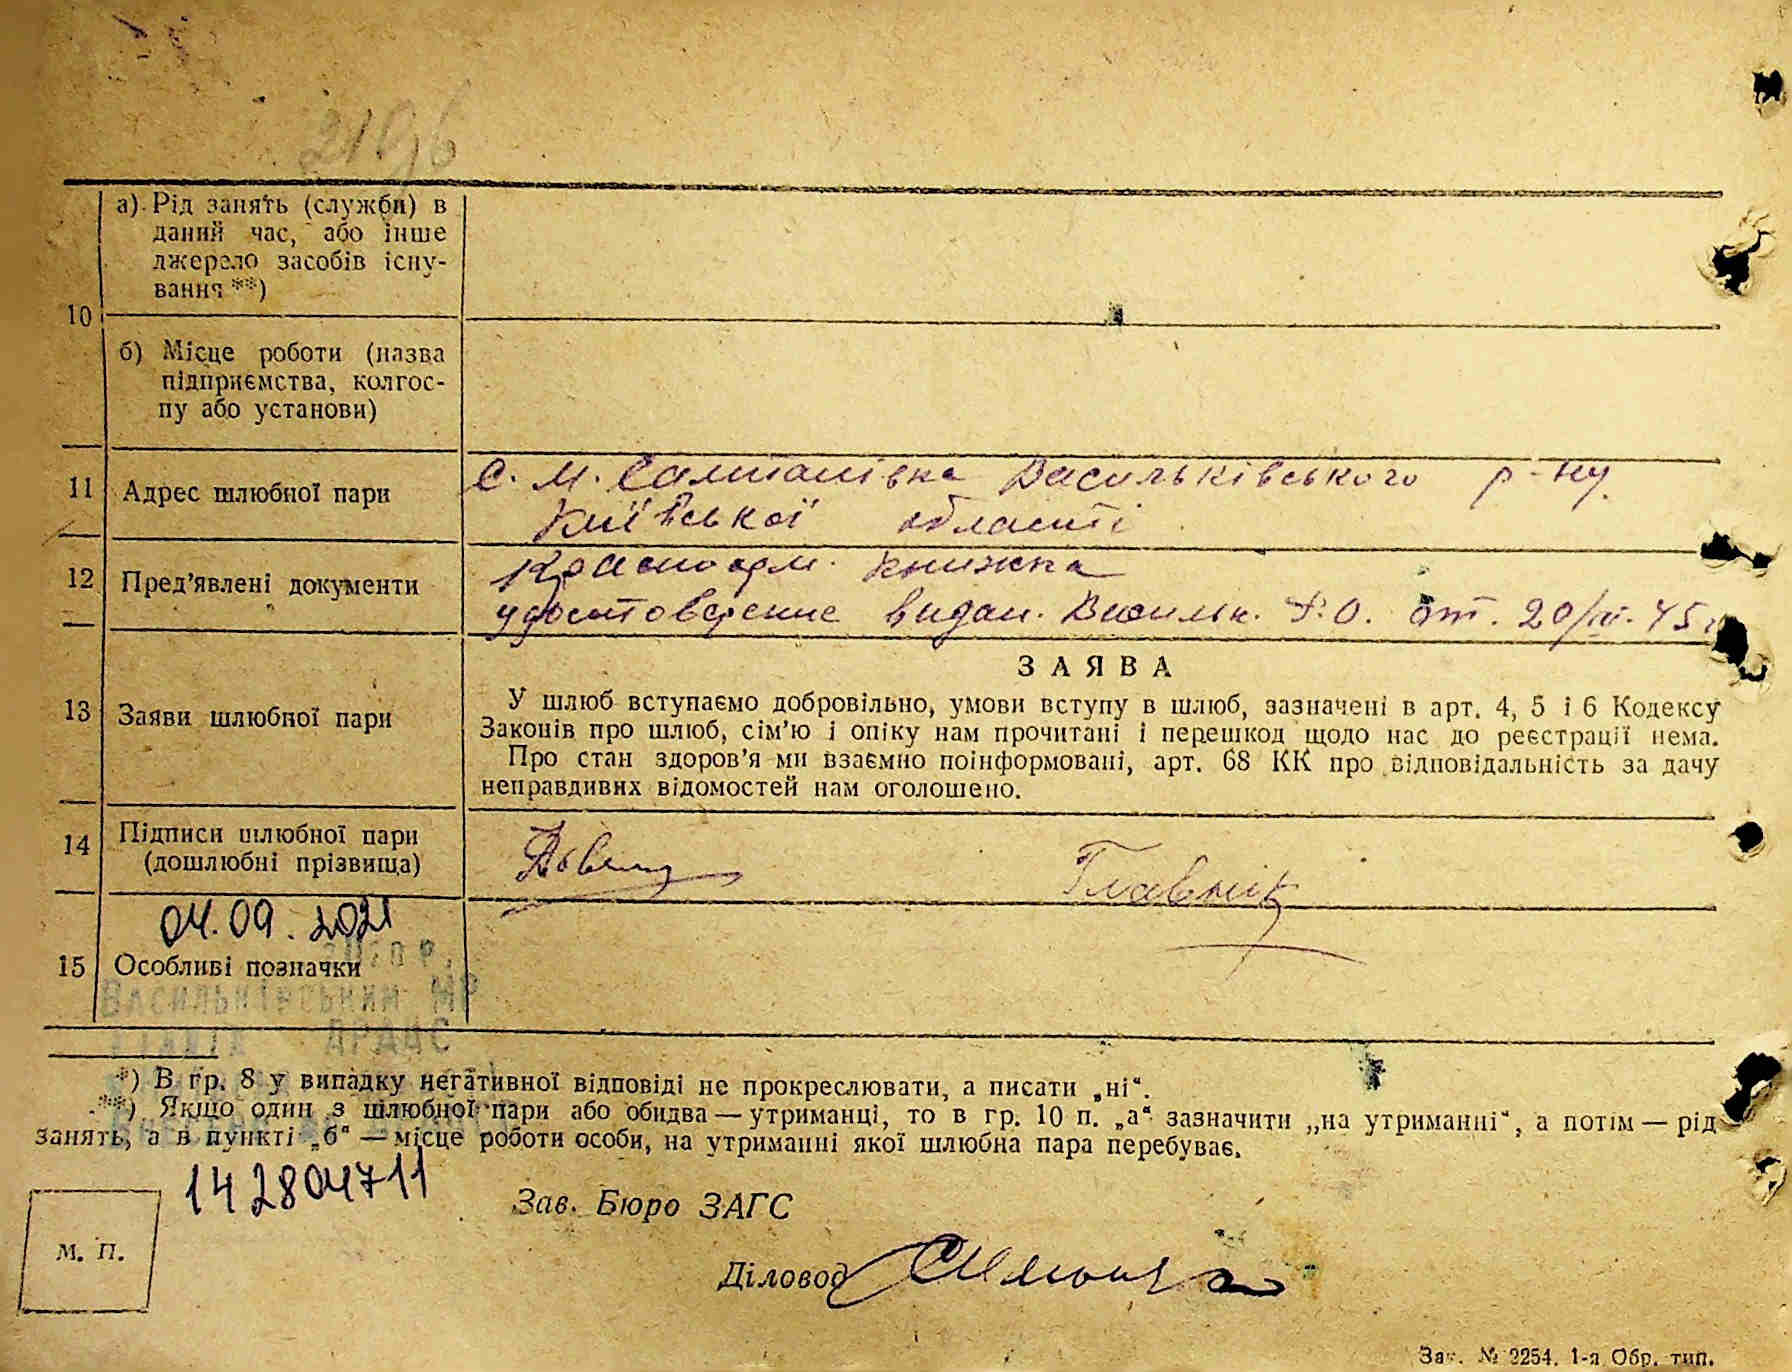 2196
а) Рід занять (служби) в
даний час, або інше
джерело засобів існу-
вання **)
10
б) Місце роботи (назва
підприємства, колгос-
пу або установи)
11 Адрес шлюбної пари
с. М. Салтанівка Васильківського р-ну
Київської області
12 Пред'явлені документи
Красноарм. книжка
удостоверение видан. Васильк. Р.О. от. 20/III-45г
13 Заяви шлюбної пари
ЗАЯВА
У шлюб вступаємо добровільно, умови вступу в шлюб, зазначені в арт. 4, 5 і 6 Кодексу
Законів про шлюб, сім'ю і опіку нам прочитані і перешкод щодо нас до реєстрації нема.
Про стан здоров'я ми взаємно поінформовані, арт. 68 КК про відповідальність за дачу
неправдивих відомостей нам оголошено.
14 Підписи шлюбної пари
(дошлюбні прізвища)
Главнік
04.09.2021
15 Особливі позначки
Васильківський МР
ДРАЦС
*) В гр. 8 у випадку негативної відповіді не прокреслювати, а писати „ні“.
**) Якщо один з шлюбної пари або обидва — утриманці, то в гр. 10 п. „а“ зазначити „на утриманні“, а потім — рід
занять, а в пункті „б“ — місце роботи особи, на утриманні якої шлюбна пара перебуває.
142804711
Зав. Бюро ЗАГС
М. П.
Діловод
Зак. № 2254. 1-а Обр. тип.